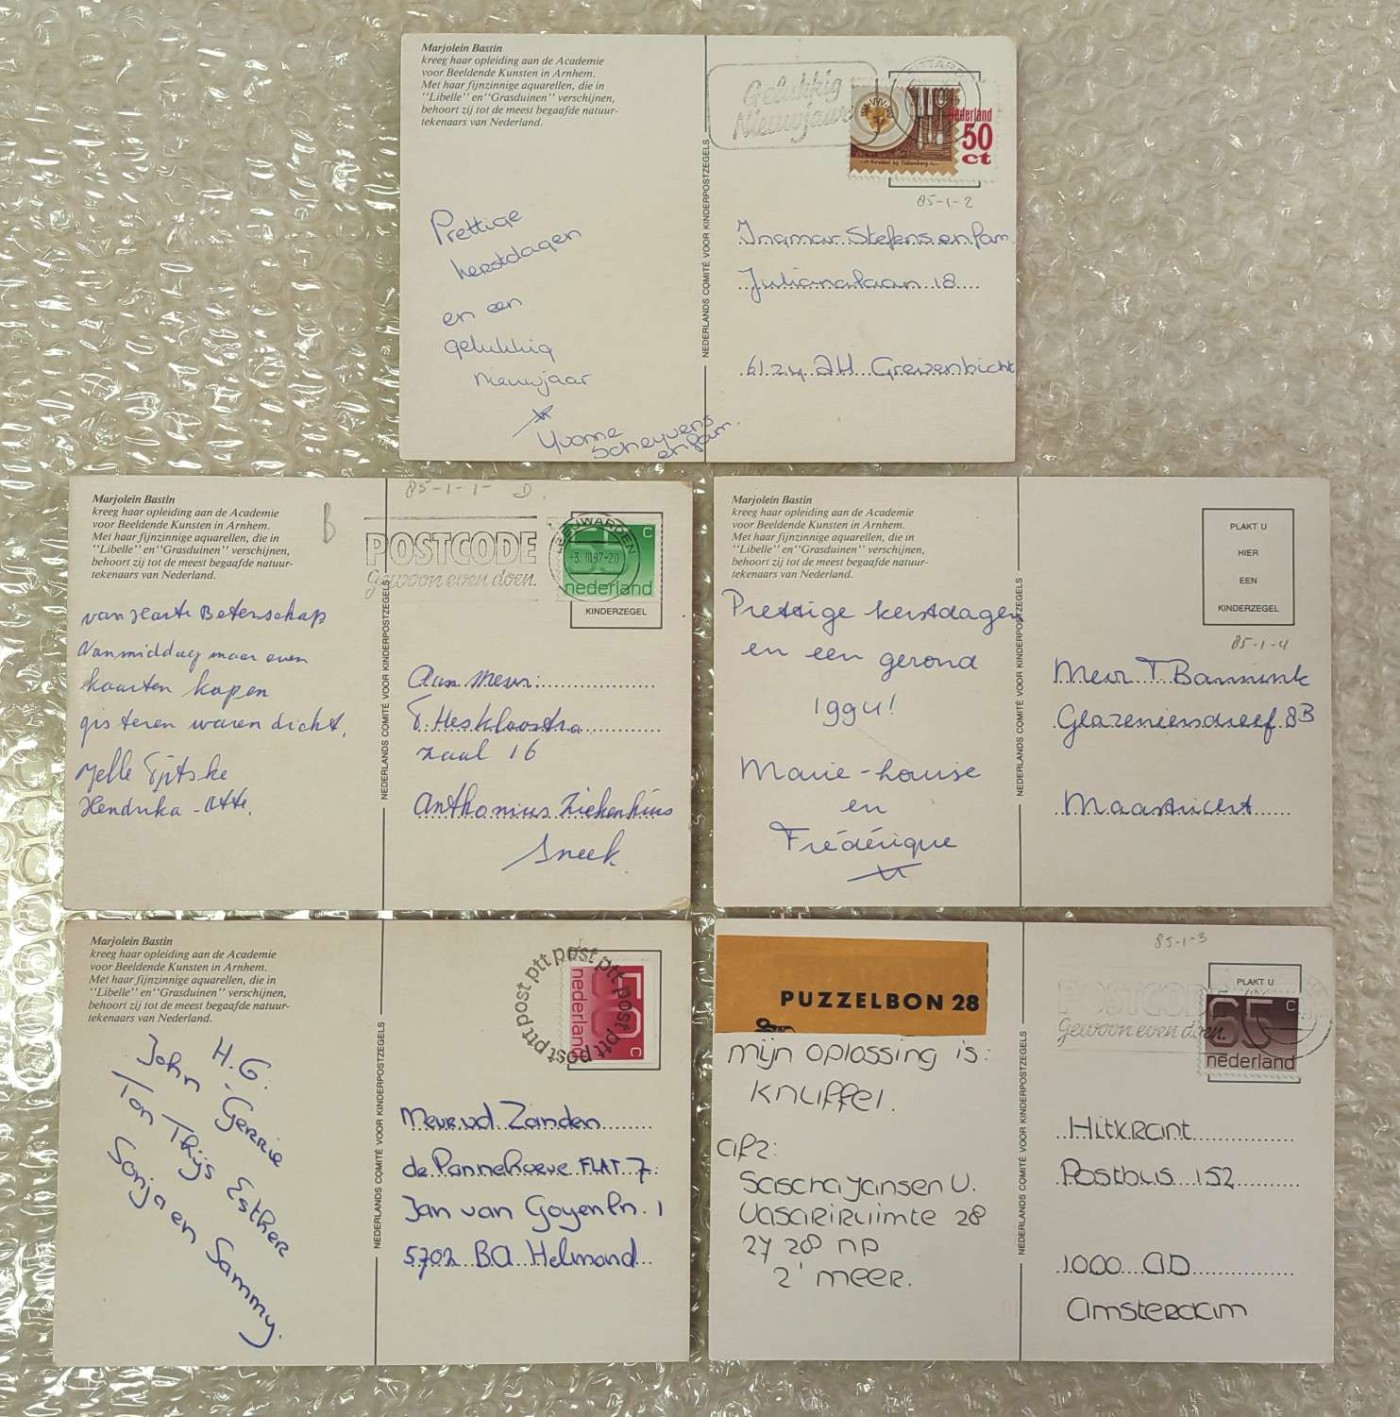 Marjolein Bastin
kreeg haar opleiding aan de Academie
voor Beeldende Kunsten in Arnhem.
Met haar fijnzinnige aquarellen, die in
''Libelle'' en ''Grasduinen'' verschijnen,
behoort zij tot de meest begaafde natuur-
tekenaars van Nederland.
Gelukkig
Nieuwjaar
Nederland
50
ct
85-1-2
Prettige
kerstdagen
en een
gelukkig
nieuwjaar
Yvonne
Scheyvens
en fam.
NEDERLANDS COMITÉ VOOR KINDERPOSTZEGELS
Ingmar Stefens en fam.
Julianalaan 18
6124 AH Grevenbicht
Marjolein Bastin
kreeg haar opleiding aan de Academie
voor Beeldende Kunsten in Arnhem.
Met haar fijnzinnige aquarellen, die in
''Libelle'' en ''Grasduinen'' verschijnen,
behoort zij tot de meest begaafde natuur-
tekenaars van Nederland.
B
85-1-1- D.
POSTCODE
Gewoon even doen.
LEEUWARDEN
-3.III.87-20
c
nederland
KINDERZEGEL
van Harte Beterschap
Vanmiddag maar even
kaarten kopen
gisteren waren dicht.
Jelle Tjitske
Hendrika - Otte.
NEDERLANDS COMITÉ VOOR KINDERPOSTZEGELS
Aan Mevr:
T. Heskloostra
zaal 16
Anthonius Ziekenhuis
Sneek.
Marjolein Bastin
kreeg haar opleiding aan de Academie
voor Beeldende Kunsten in Arnhem.
Met haar fijnzinnige aquarellen, die in
''Libelle'' en ''Grasduinen'' verschijnen,
behoort zij tot de meest begaafde natuur-
tekenaars van Nederland.
PLAKT U
HIER
EEN
KINDERZEGEL
85-1-4
Prettige kerstdagen
en een gezond
1994!
Marie-louise
en
Frédérique
NEDERLANDS COMITÉ VOOR KINDERPOSTZEGELS
Mevr T. Bannink
Glazeniersdreef 8B
Maastricht
Marjolein Bastin
kreeg haar opleiding aan de Academie
voor Beeldende Kunsten in Arnhem.
Met haar fijnzinnige aquarellen, die in
''Libelle'' en ''Grasduinen'' verschijnen,
behoort zij tot de meest begaafde natuur-
tekenaars van Nederland.
post ptt post ptt post ptt post ptt
50 c
nederland
H.G.
John - Gerrie
Ton Thijs Esther
Sonja en Sammy.
NEDERLANDS COMITÉ VOOR KINDERPOSTZEGELS
Mevr. vd. Zanden
de Pannehoeve FLAT 7.
Jan van Goyenln. 1
5702 BA Helmond
PUZZELBON 28
85-1-3
PLAKT U
POSTCODE
Gewoon even doen.
65 c
nederland
mijn oplossing is:
KNUFFEL.
afz:
Sascha Jansen v.
Vasariruimte 28
2728 NP
Z'meer.
NEDERLANDS COMITÉ VOOR KINDERPOSTZEGELS
Hitkrant
Postbus 152
1000 AD
Amsterdam